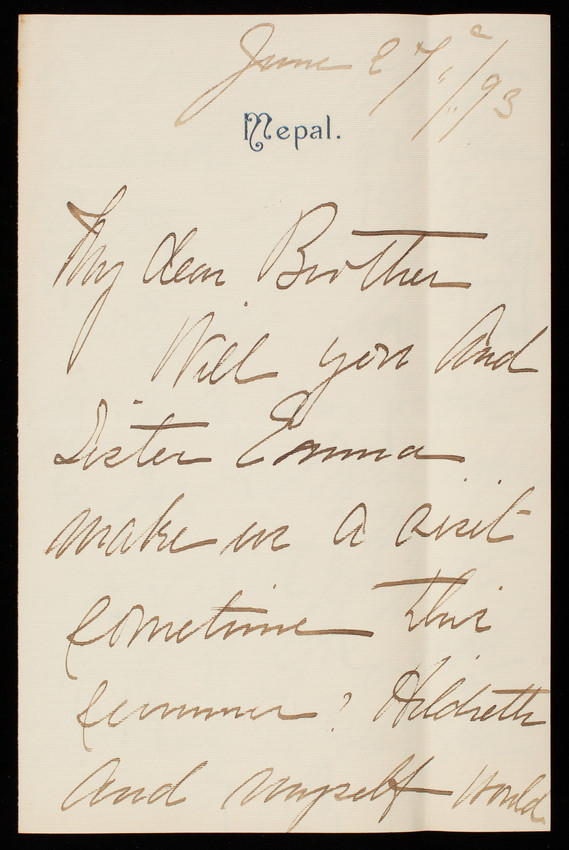 June 27"/93
Nepal.
My dear Brother
Will you and
Sister Emma
make us a visit
sometime this
summer? Hildreth
and myself would